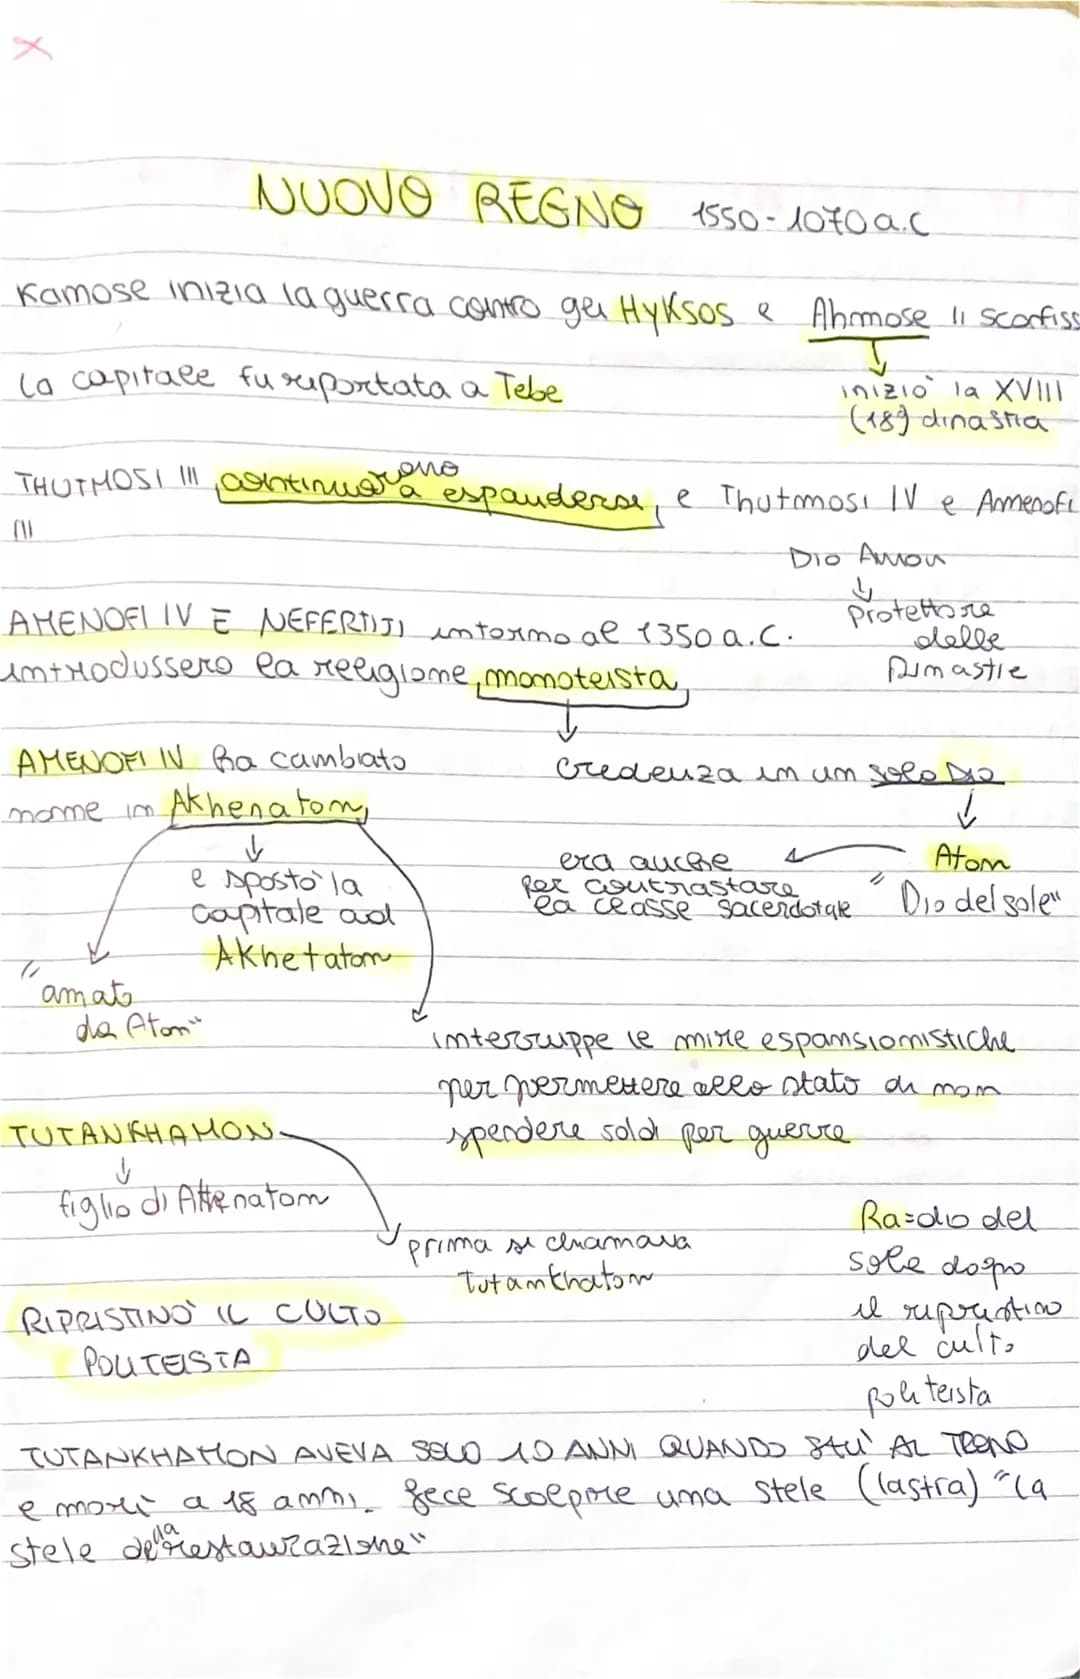 NUOVO REGNO 1550-1070 a.C
Kamose inizia la guerra contro gli Hyksos e Ahmose li scorfiss
la capitale fu riportata a Tebe
iniziò la XVIII
(18ª) dinastia
THUTMOSI III continuarono a espandersi, e Thutmosi IV e Amenofi
III
Dio Amon
Protettore
delle
Dinastie
AMENOFI IV E NEFERTITI intorno al 1350 a.C.
introdussero la religione monoteista
AMENOFI IV ha cambiato
nome in Akhenaton
credenza in un solo Dio
Aton
"Dio del sole"
era anche
per contrastare
la classe sacerdotale
e spostò la
capitale ad
Akhetaton
"amato
da Aton"
interruppe le mire espansionistiche
per permettere allo stato di non
spendere soldi per guerre
TUTANKHAMON
figlio di Akhenaton
prima si chiamava
Tutankhaton
Ra=dio del
sole dopo
il ripristino
del culto
politeista
RIPRISTINÒ IL CULTO
POLITEISTA
TUTANKHAMON AVEVA SOLO 10 ANNI QUANDO AL TRONO
e morì a 18 anni. fece scolpire una stele (lastra) "la
stele della restaurazione"